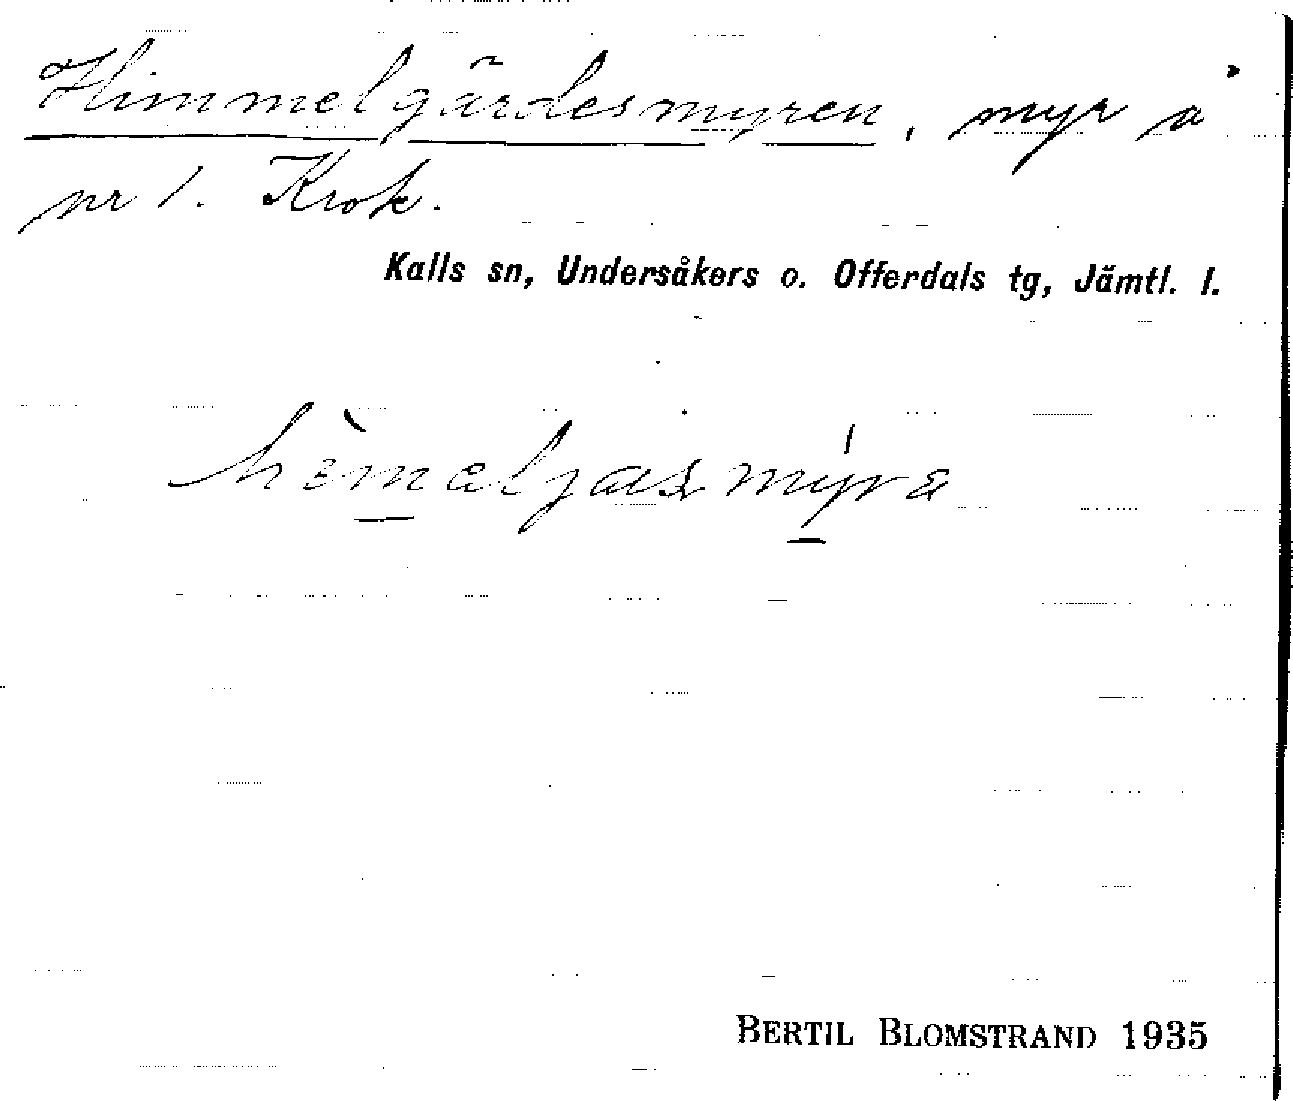 Himmelgärdesmyren, myr å
nr 1. Krok.
Kalls sn, Undersåkers o. Offerdals tg, Jämtl. l.
BERTIL BLOMSTRAND 1935